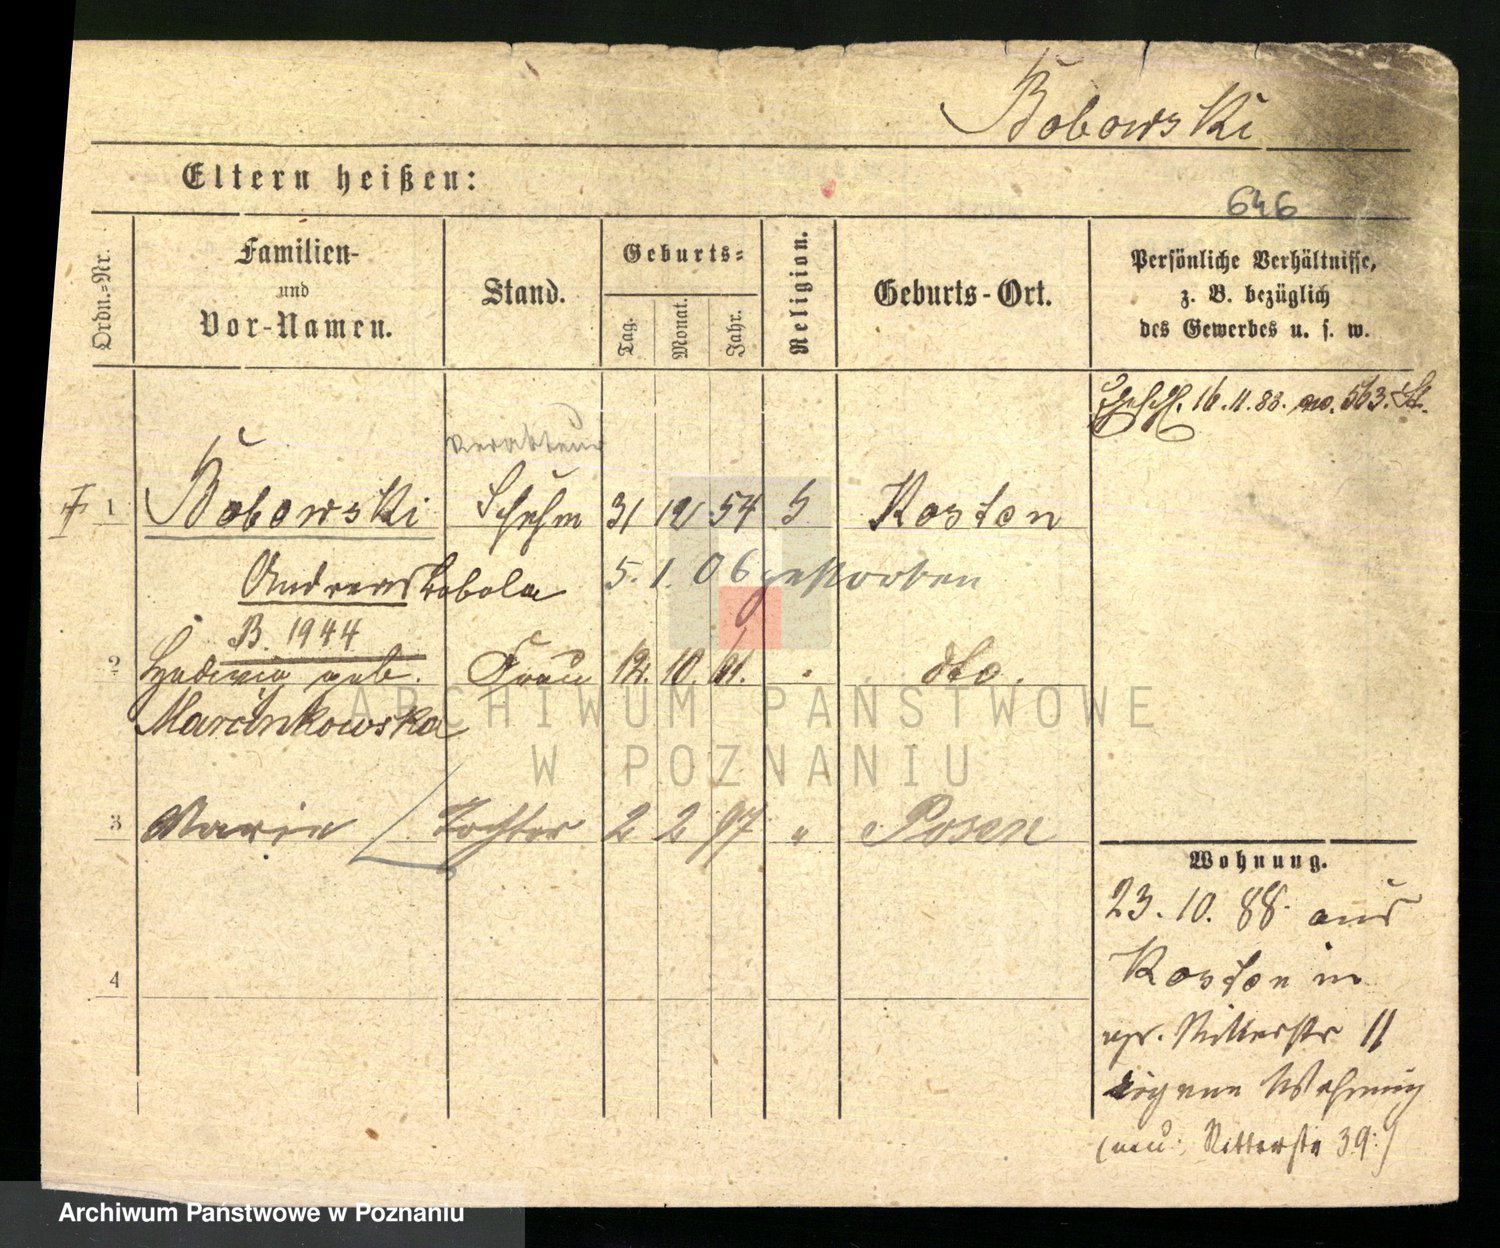 Bobowski
Eltern heißen:
646
Ordn.-Nr.
Familien-
und
Vor-Namen.
Stand.
Geburts-
Tag.
Monat.
Jahr.
Religion.
Geburts-Ort.
Persönliche Verhältnisse,
z. B. bezüglich
des Gewerbes u. s. w.
16.11.88. no. 563. St.
1 Bobowski 31 12 54 Kosten
Andreas Bobola 5. 1. 06 gestorben
B. 1944
2 Hedwig geb. Frau 12. 10. 61. " dto.
Marcinkowska
3 Marie Tochter 2 2 97 " Posen
Wohnung.
23. 10. 88. aus
Kosten in
Ritterstr 11
eigene Wohnung
(neu: Ritterstr 39.)
4
ARCHIWUM PAŃSTWOWE
W POZNANIU
Archiwum Państwowe w Poznaniu